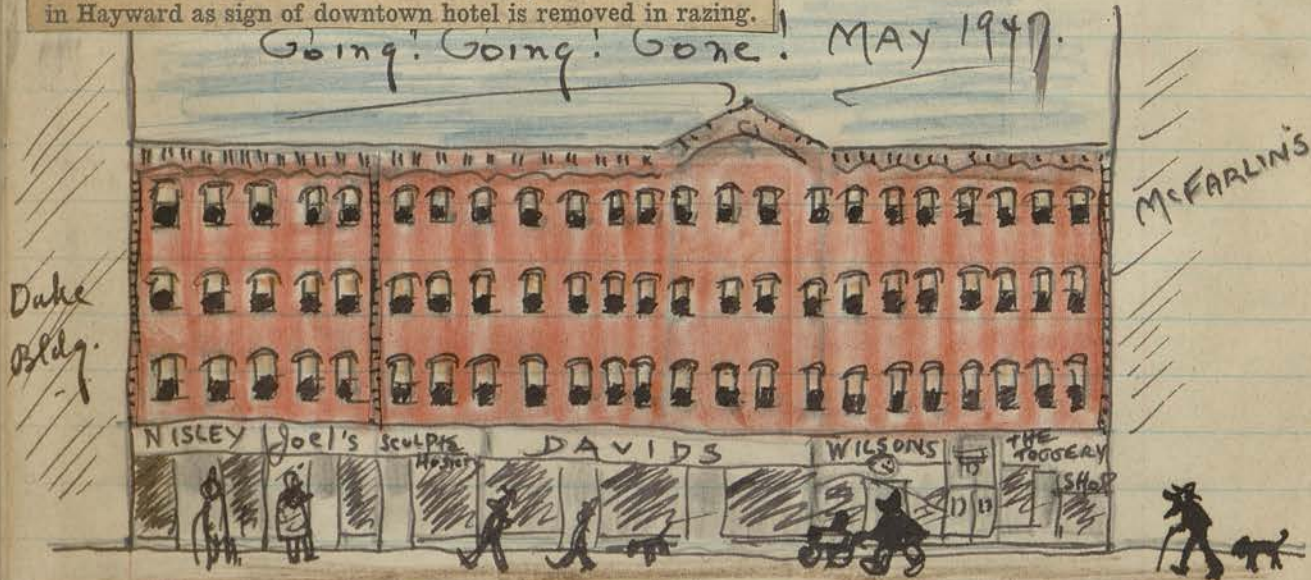 in Hayward as sign of downtown hotel is removed in razing.
Going! Going! Gone! MAY 1947.
McFARLIN'S
Duke
Bldg.
NISLEY Joel's SCULPTE DAVIDS WILSONS THE
Hosiery TOGGERY
SHOP